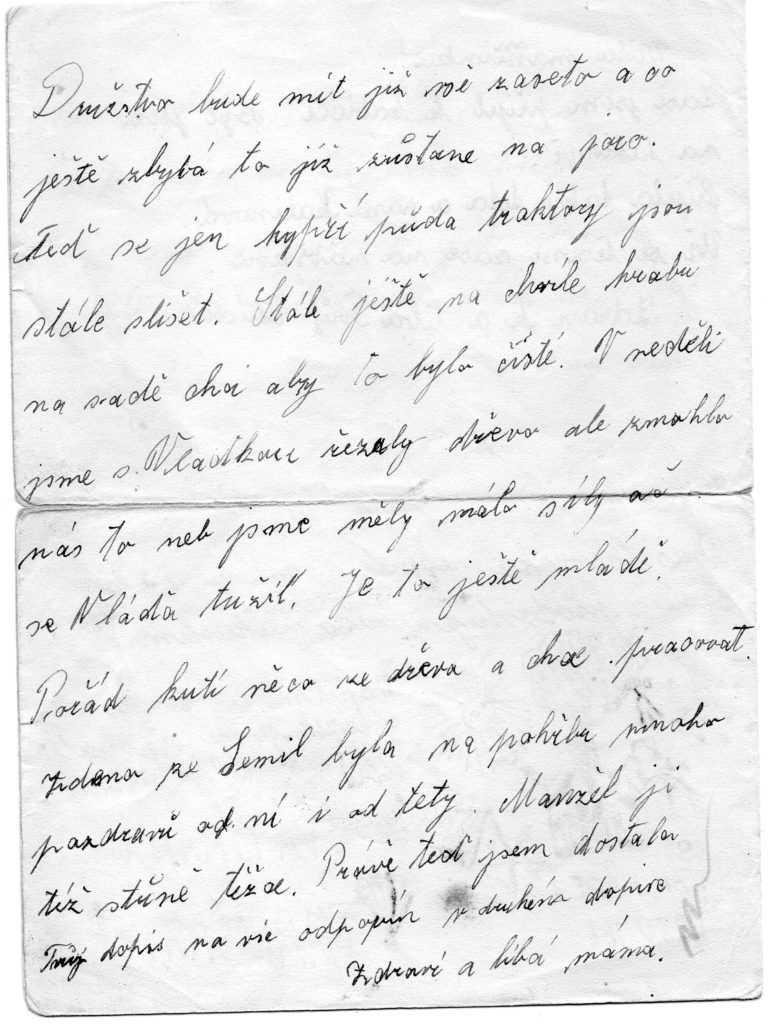 Družstvo bude mít již vše zaseto a co
ještě zbybá to již zůstane na jaro.
Teď se jen kypří půda traktory jsou
stále slišet. Stále ještě na chvíle hrabu
na sadě chci aby to bylo čisté. V neděli
jsme s Vladíkem řezaly dřevo ale zmohlo
nás to neb jsme měly málo síly ač
se Vláďa tužil. Je to ještě mládě.
Pořád kutí něco ze dřeva a chce pracovat.
Zdena ze Semil byla na pohřbu mnoho
pozdravů od ní i od tety. Manžel jí
též stůně těžce. Právě teď jsem dostala
Tvůj dopis na vše odpovím v druhém dopise
Zdraví a líbá máma.